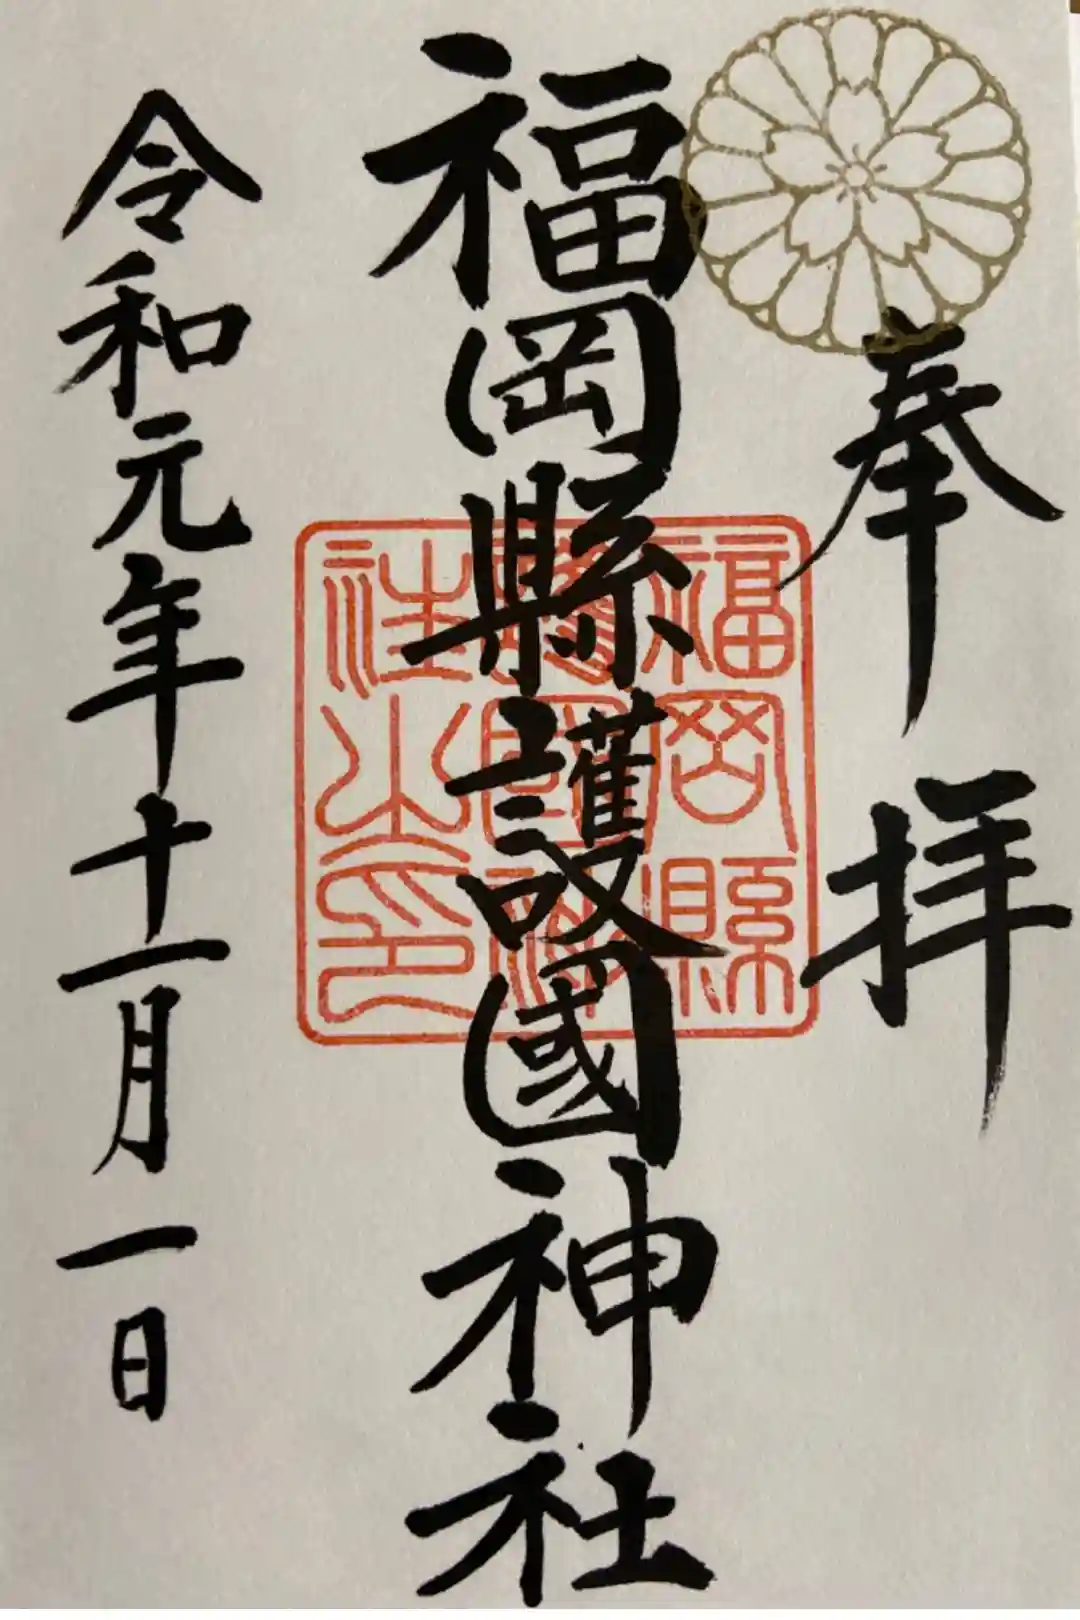 奉拝
福岡縣護國神社
福岡縣
護國神
社之印
令和元年十一月一日